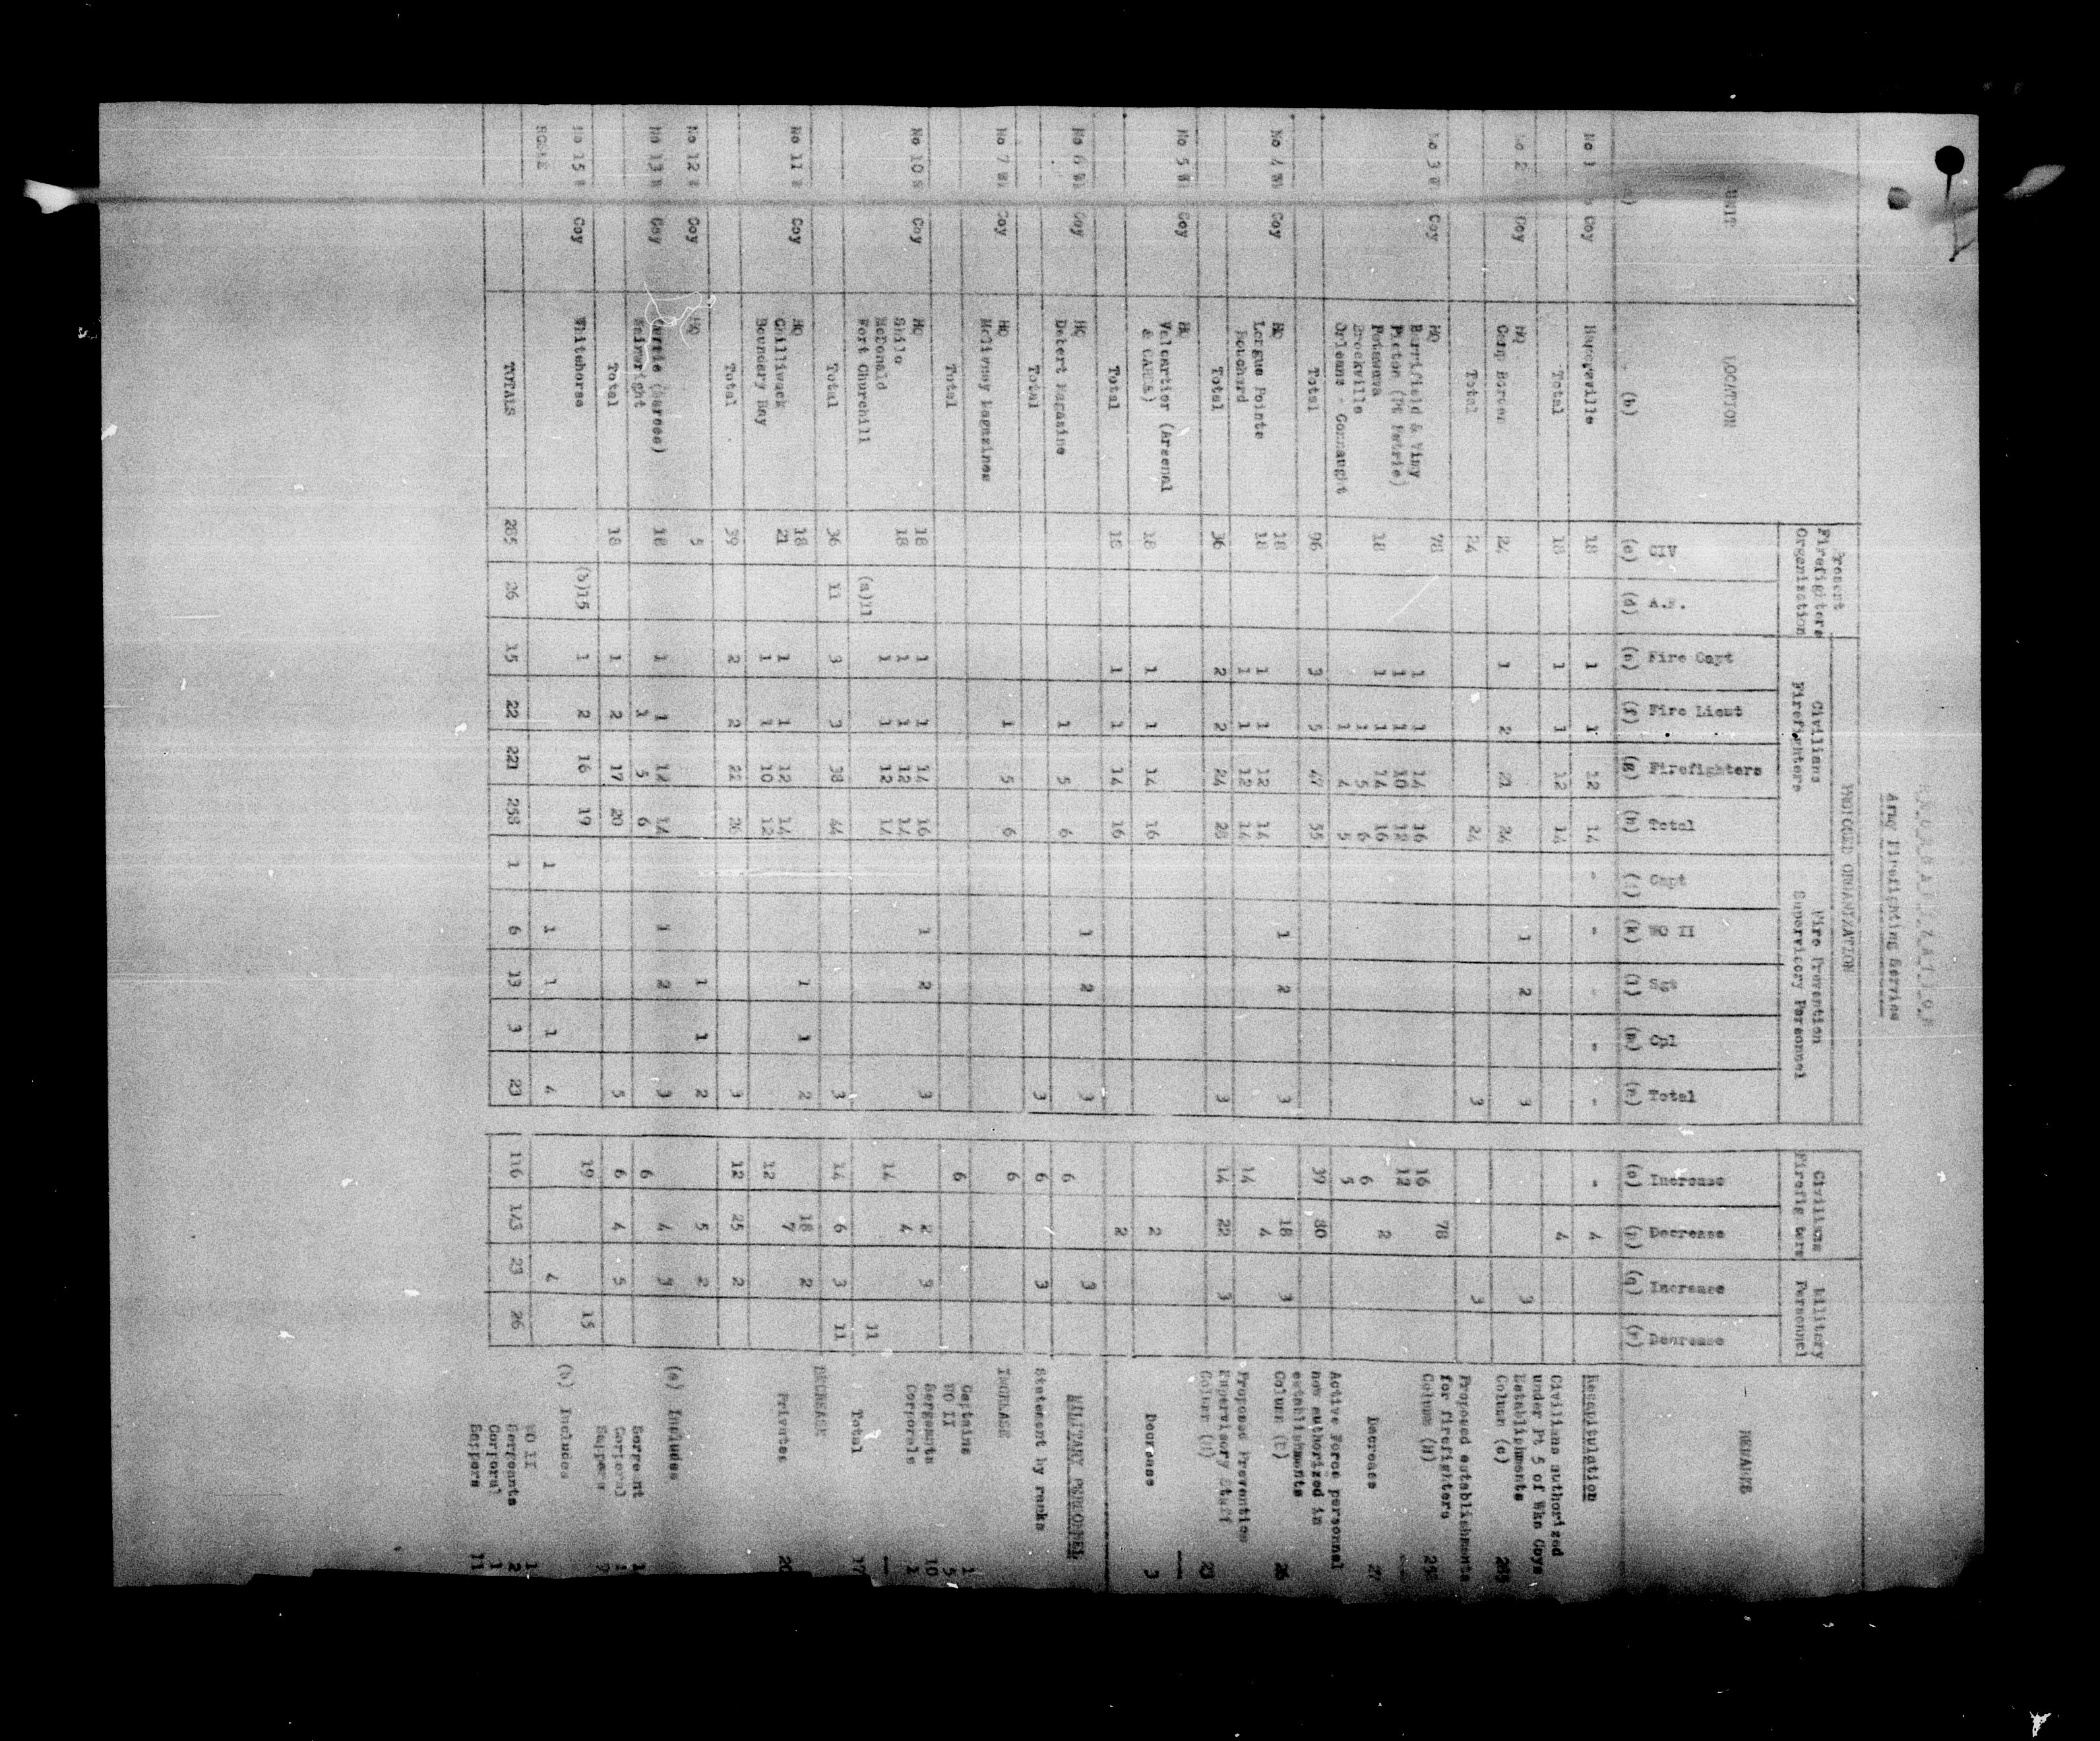 Army Firefighting Service
UNIT
(b) LOCATION
Present Firefighters Organization
PROPOSED ORGANIZATION
Civilians Firefighters
Fire Prevention Supervisory Personnel
Civilians
Military Personnel
REMARKS
(d) (e) Fire Capt (f) Fire Lieut (g) Firefighters (h) Total Capt (k) WO II Cpl (n) Total (o) Increase (p) Decrease (q) Increase (r) Decrease
No 1 Coy Hagersville 18 1 1 12 14 - - - - - - 4
Total 18 1 1 12 14 4
No 2 Coy HQ 1 2 3 3
Camp Borden 24 1 2 21 24
Total 24 24 3 3
No 3 Coy HQ 78 78
Barriefield & Vimy 1 1 14 16 16
1 1 10 12 12
Petawawa 18 1 1 14 16 2
Brockville 1 5 6 6
Orleans - Connaught 1 4 5 5
Total 96 3 5 47 55 39 80
No 4 Coy HQ 18 1 2 3 18 3
Longue Pointe 18 1 1 12 14 4
Bouchard 1 1 12 14 14
Total 36 2 2 24 28 3 14 22 3
No 5 Coy HQ
Valcartier (Arsenal 18 1 1 14 16 2
Total 18 1 1 14 16 2
No 6 Coy HQ 1 2 3 3
Debert Magazine 1 5 6 6
Total 3 6 3
No 7 Coy HQ 1 5 6 6
McGivney Magazines
Total 6
No 10 Coy HQ 18 1 1 14 16 1 2 3 2 3
Shilo 18 1 1 12 14 4
McDonald 1 1 12 14 14
Fort Churchill (a)11 11
Total 36 11 3 3 38 44 3 14 6 3 11
No 11 Coy HQ 18 1 1 2 18 2
Chilliwack 21 1 1 12 14 7
Boundary Bay 1 1 10 12 12
Total 39 2 2 22 26 3 12 25 2
No 12 Coy HQ 5 1 1 2 5 2
No 13 Coy Currie (Sarcee) 18 1 1 12 14 1 2 3 4 3
Wainwright 1 5 6 6
Total 18 1 2 17 20 5 6 4 5
No 15 Coy Whitehorse (b)15 1 2 16 19 19 15
1 1 1 1 4 4
TOTALS 285 26 15 22 221 258 1 6 13 3 23 116 143 23 26
Recapitulation
Civilians authorized
under Pt 5 of Wks Coys
Establishments
Column (c) 285
Proposed establishments
for firefighters
Column (H) 258
Decrease 27
Active Force personnel
now authorized in
establishments
26
Proposed Prevention
Supervisory Staff
23
Decrease 3
MILITARY PERSONNEL
Statement by ranks
INCREASE
Captains 1
WO II 5
Sergeants 10
Corporals 1
Total 17
DECREASE
Privates 20
(a) Includes
Sergeant 1
Corporal 1
Sappers 9
(b) Includes
WO II 1
Sergeants 2
Corporal 1
Sappers 11